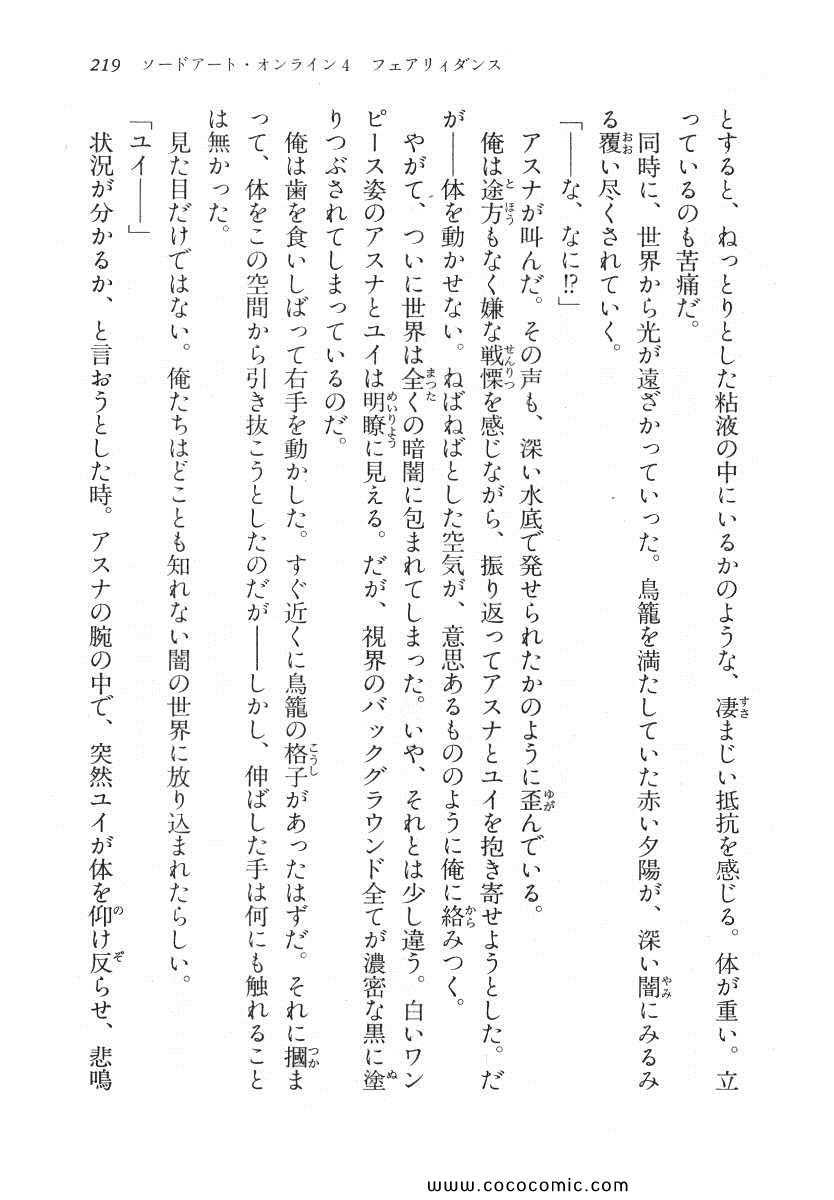 219 ソードアート・オンライン4 フェアリィダンス
とすると、ねっとりとした粘液の中にいるかのような、凄まじい抵抗を感じる。体が重い。立
っているのも苦痛だ。
同時に、世界から光が遠ざかっていった。鳥籠を満たしていた赤い夕陽が、深い闇にみるみ
る覆い尽くされていく。
「――な、なに!?」
アスナが叫んだ。その声も、深い水底で発せられたかのように歪んでいる。
俺は途方もなく嫌な戦慄を感じながら、振り返ってアスナとユイを抱き寄せようとした。だ
が――体を動かせない。ねばねばとした空気が、意思あるもののように俺に絡みつく。
やがて、ついに世界は全くの暗闇に包まれてしまった。いや、それとは少し違う。白いワン
ピース姿のアスナとユイは明瞭に見える。だが、視界のバックグラウンド全てが濃密な黒に塗
りつぶされてしまっているのだ。
俺は歯を食いしばって右手を動かした。すぐ近くに鳥籠の格子があったはずだ。それに摑ま
って、体をこの空間から引き抜こうとしたのだが――しかし、伸ばした手は何にも触れること
は無かった。
見た目だけではない。俺たちはどことも知れない闇の世界に放り込まれたらしい。
「ユイ――」
状況が分かるか、と言おうとした時。アスナの腕の中で、突然ユイが体を仰け反らせ、悲鳴
www.cococomic.com